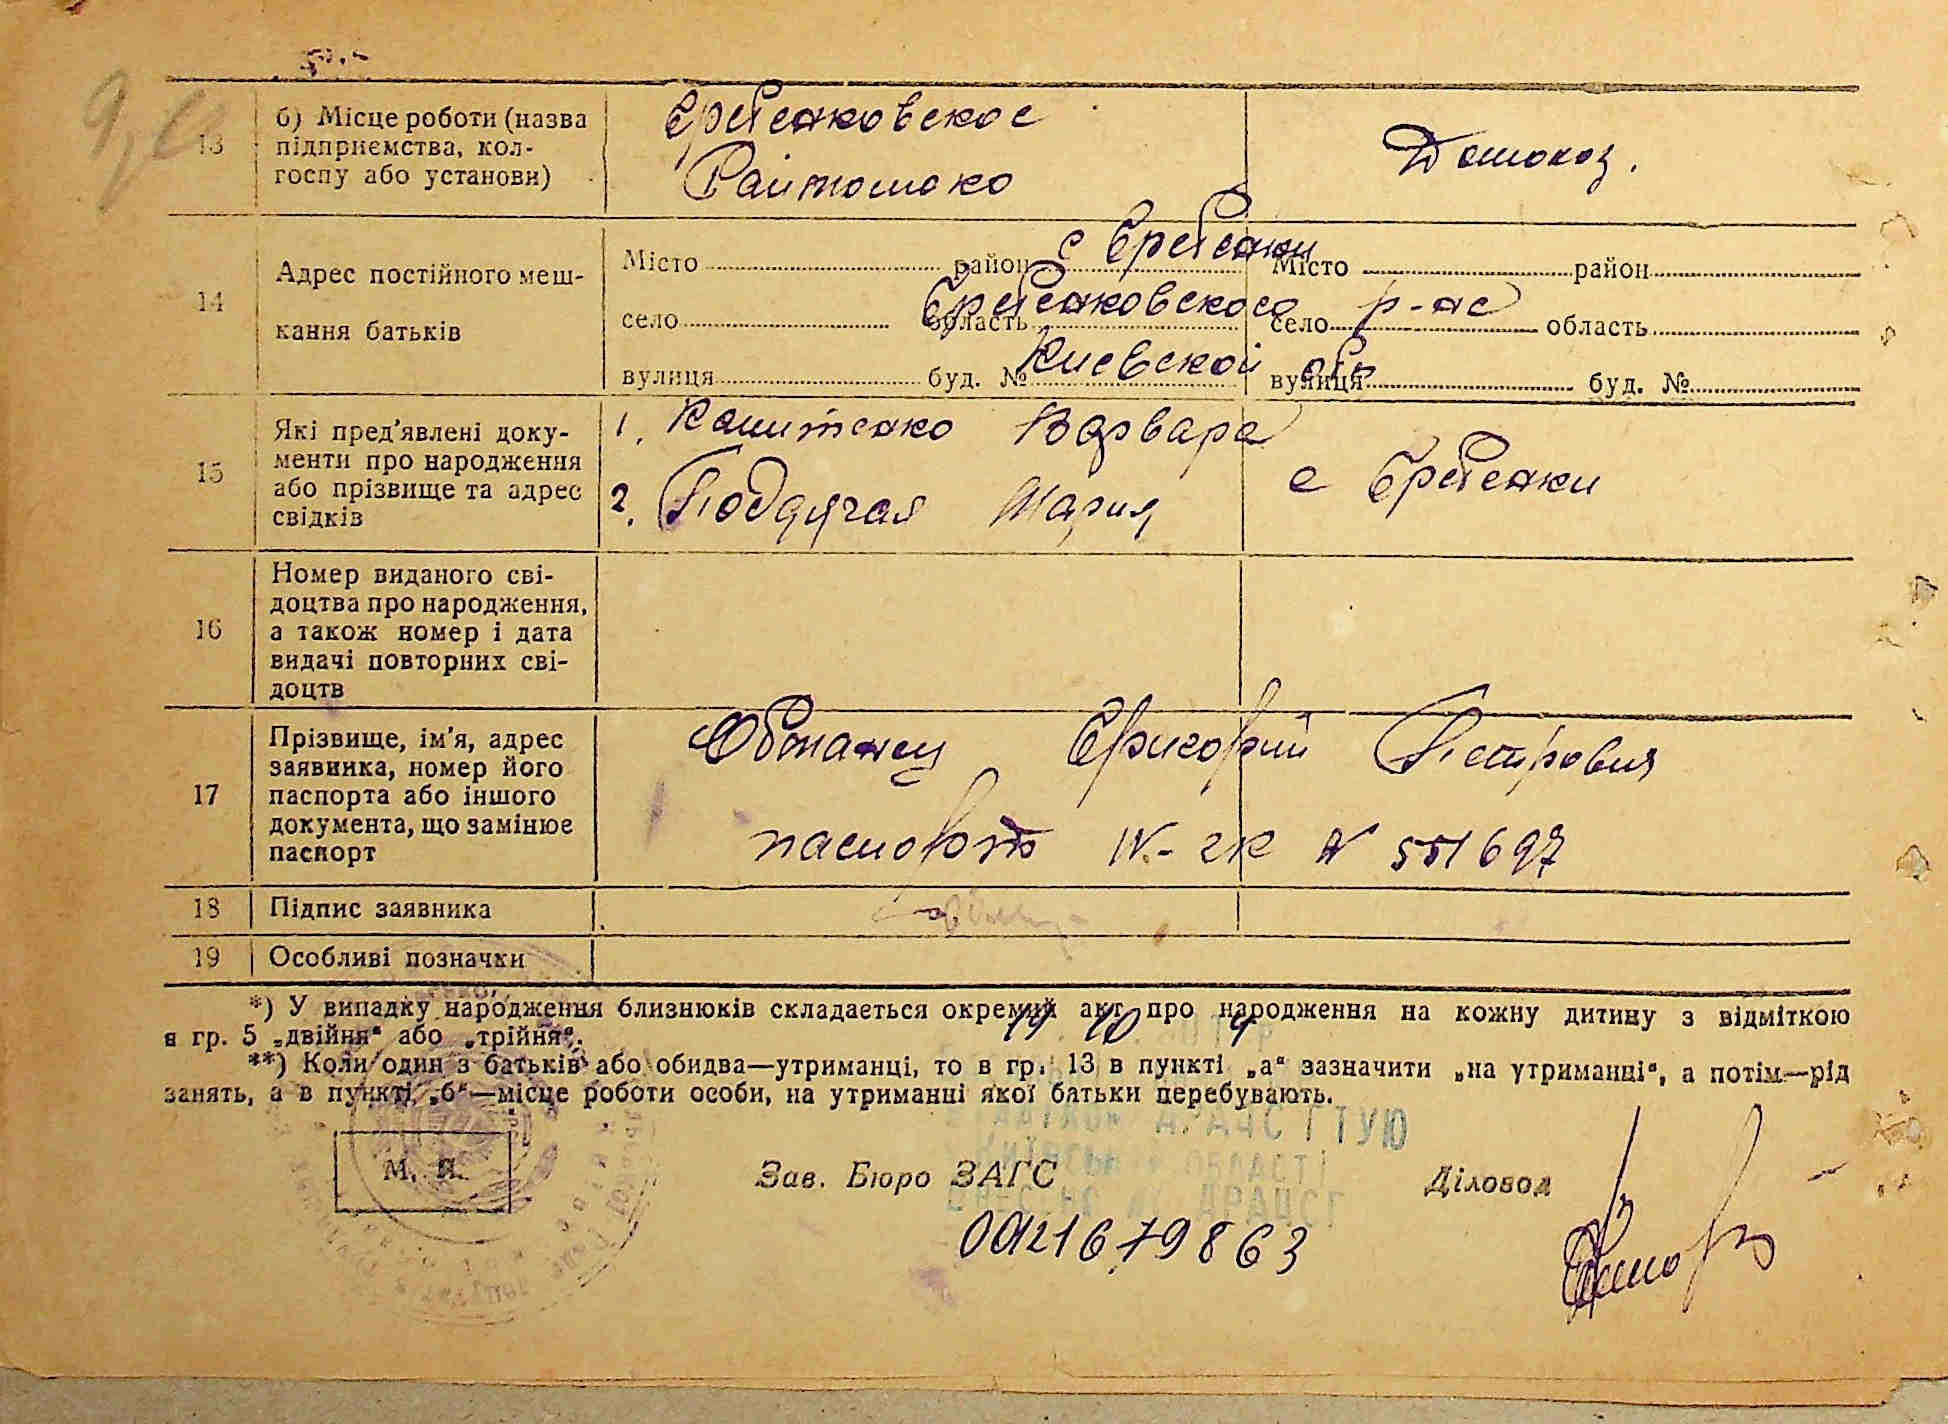 13 б) Місце роботи (назва підприємства, колгоспу або установи)
Гребенковское
Домохоз.
14 Адрес постійного меш-
кання батьків
Місто район Місто район
с Гребенки
село область село область
Гребенковского р-на
вулиця буд. № вулиця буд. №
Киевской обл
15 Які пред'явлені доку-
менти про народження
або прізвище та адрес
свідків
1. Варвара
2. Подячая Мария
с Гребенки
16 Номер виданого сві-
доцтва про народження,
а також номер і дата
видачі повторних сві-
доцтв
17 Прізвище, ім'я, адрес
заявника, номер його
паспорта або іншого
документа, що замінює
паспорт
Григорий Петрович
паспорт IV-гк N 551697
18 Підпис заявника
19 Особливі позначки
*) У випадку народження близнюків складається окремий акт про народження на кожну дитину з відміткою
в гр. 5 „двійня“ або „трійня“.
**) Коли один з батьків або обидва—утриманці, то в гр. 13 в пункті „а“ зазначити „на утриманні“, а потім—рід
занять, а в пункті „б“—місце роботи особи, на утриманні якої батьки перебувають.
ДРАЦС ГТУЮ
ОБЛАСТІ
ДРАЦСГ
М. П.
Зав. Бюро ЗАГС
Діловод
0021679863